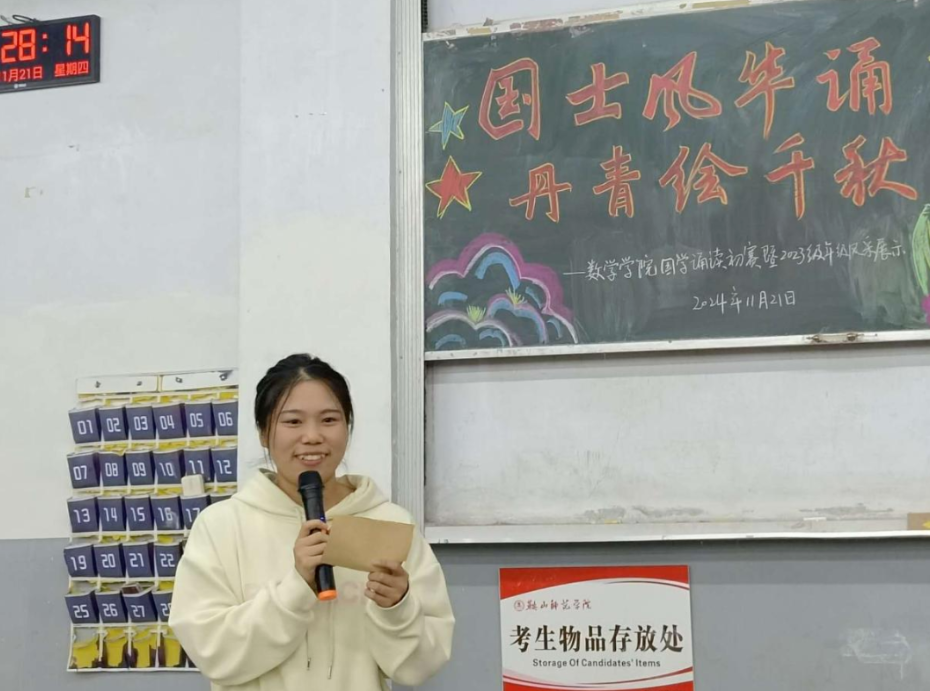 28:14
1月21日 星期四
国士风华诵
丹青绘千秋
—数学学院国学诵读初赛暨2023级年级风采展示
2024年11月21日
01 02 03 04 05 06
07 08 09 10 11 12
13 14 15 16 17
19 20 21 22
25 26 27 28
鞍山师范学院
考生物品存放处
Storage Of Candidates' Items